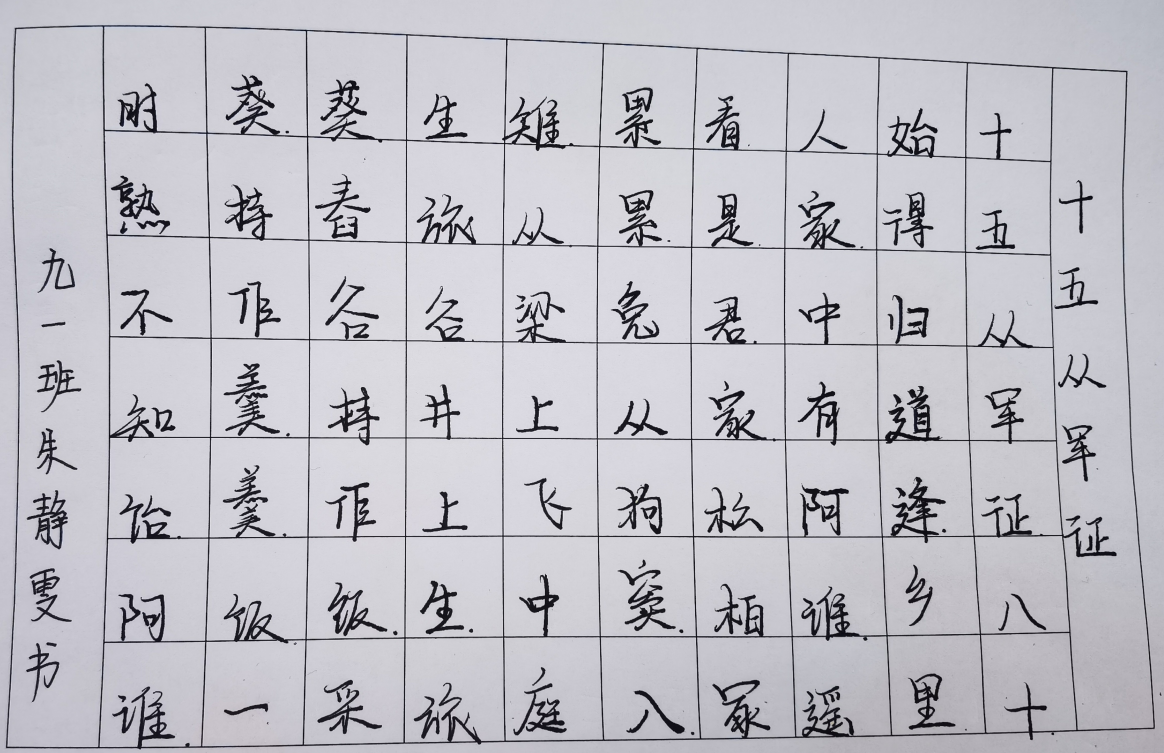 十五从军征
十五从军征八十
始得归道逢乡里
人家中有阿谁遥
看是君家松柏冢
累累兔从狗窦入
雉从梁上飞中庭
生旅谷井上生旅
葵舂谷持作饭采
葵持作羹羹饭一
时熟不知饴阿谁
九一班朱静雯书